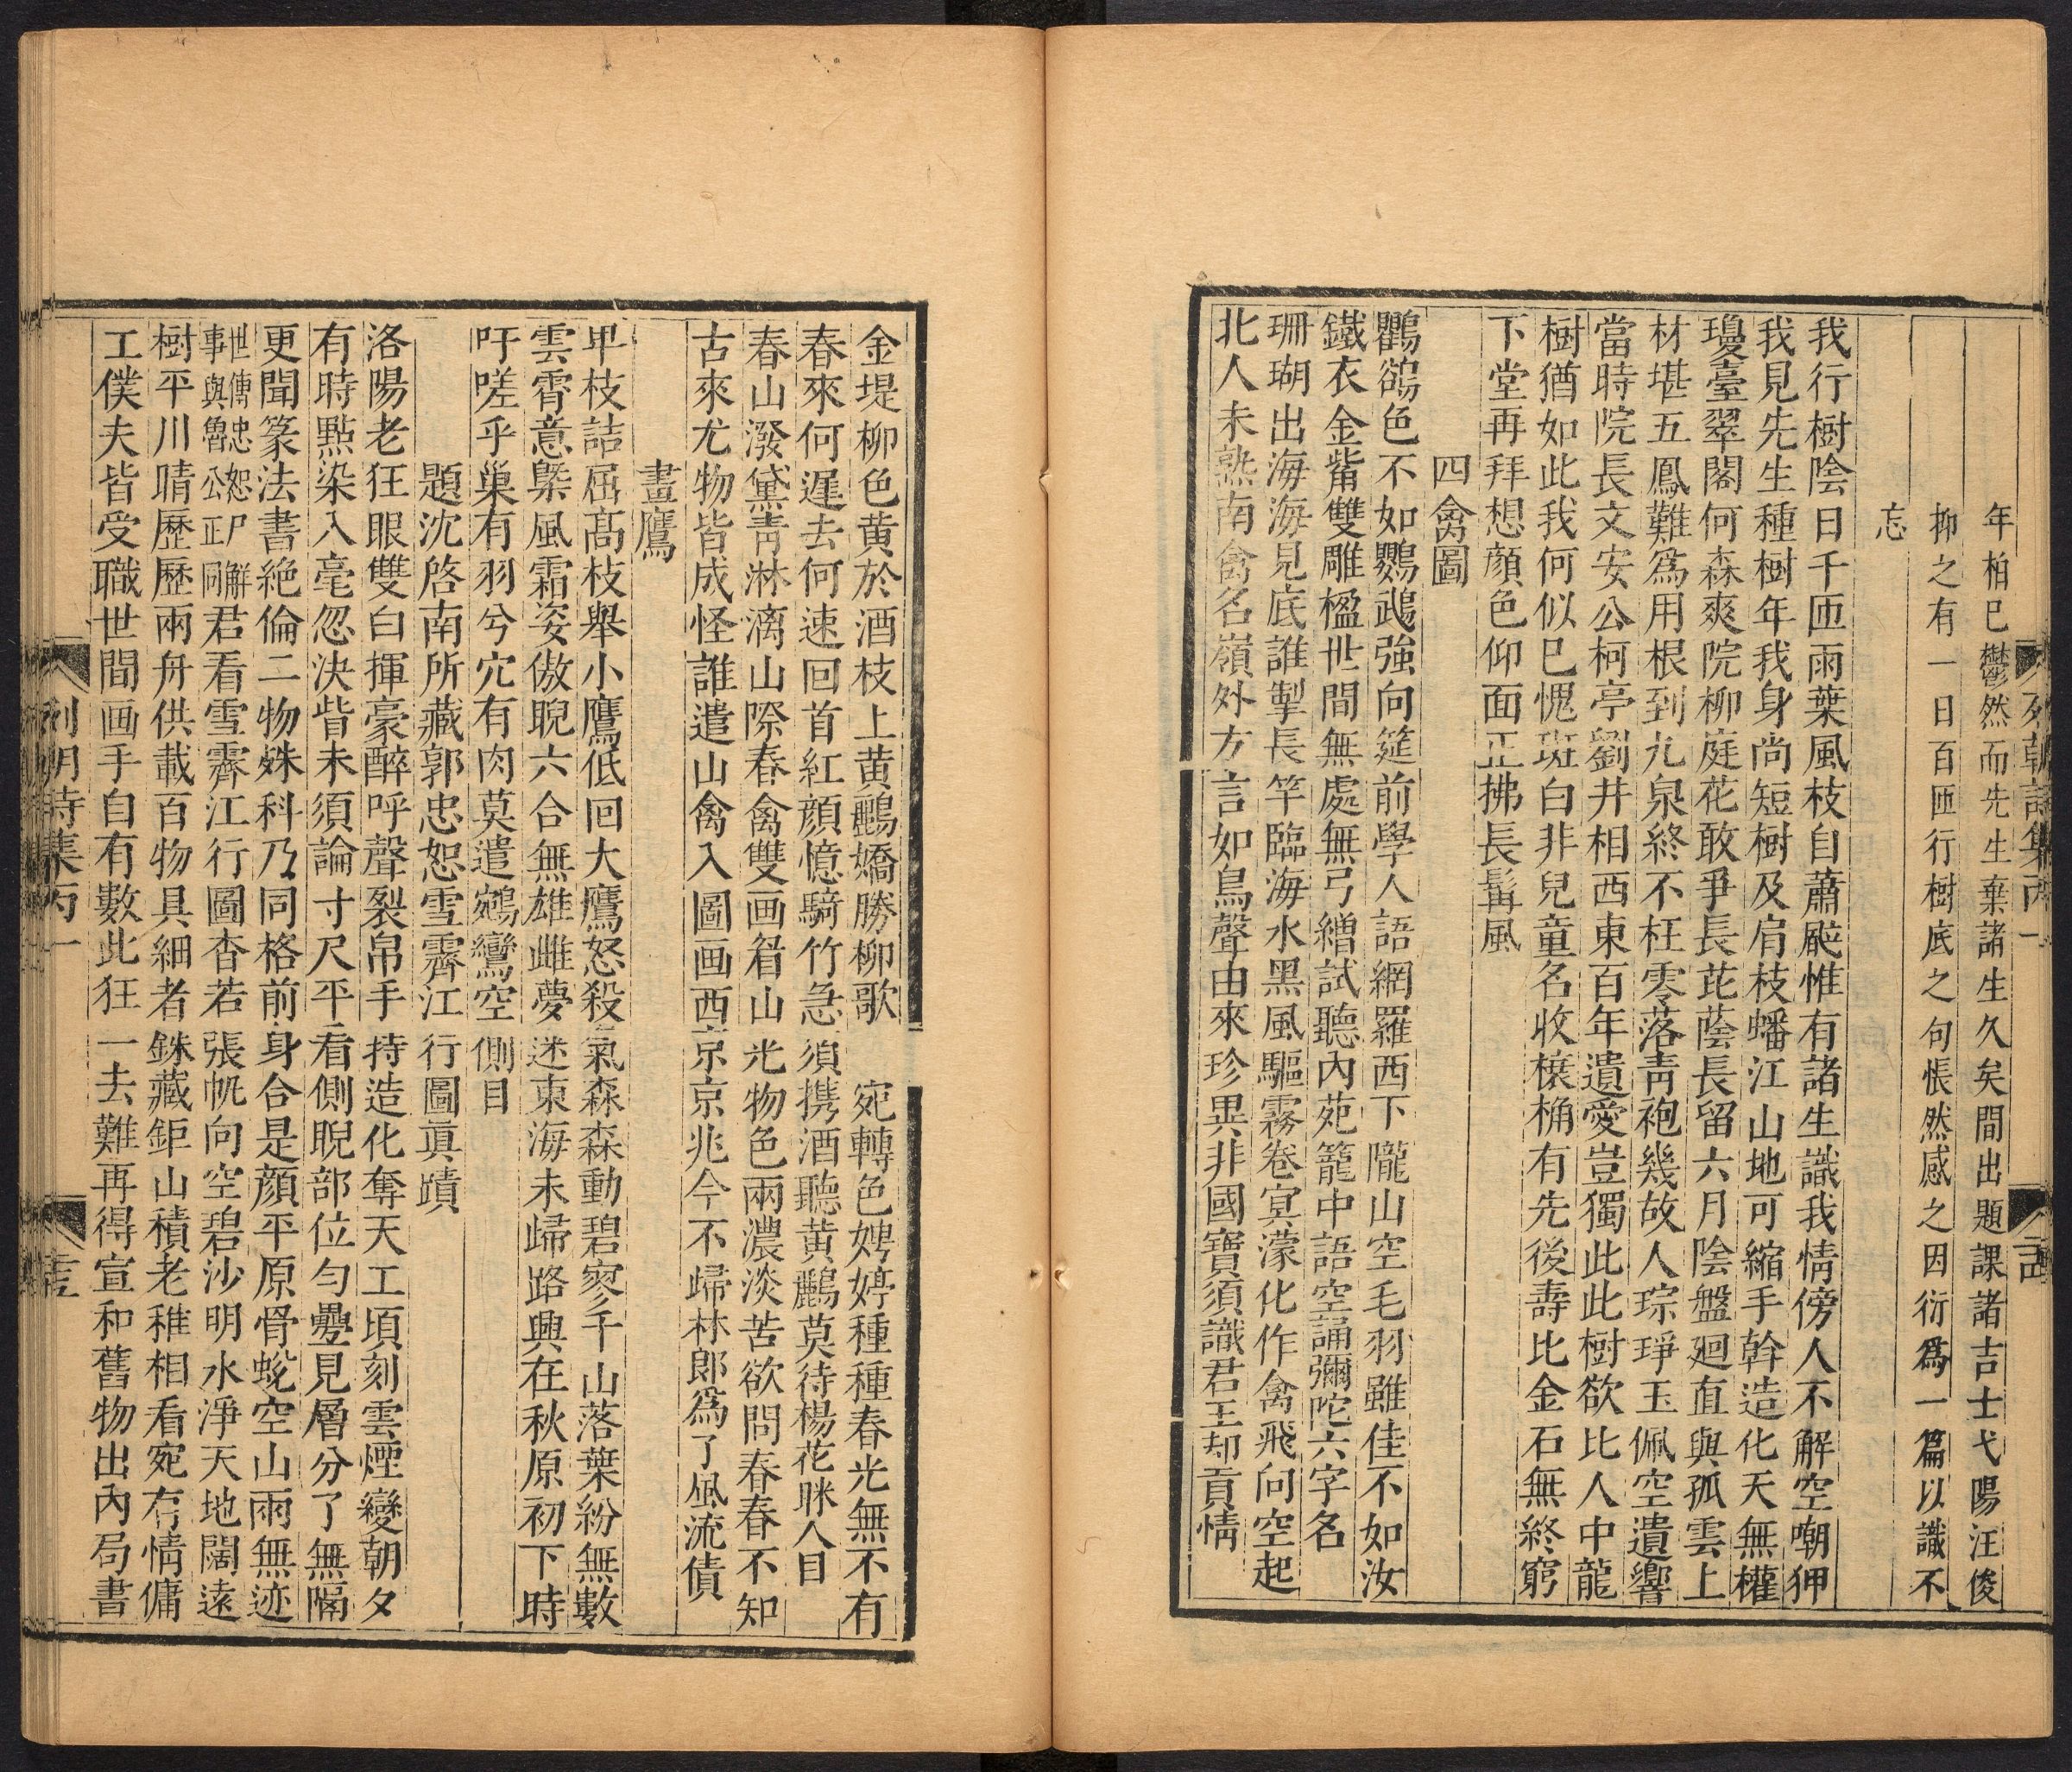 年柏已鬱然而先生棄諸生久矣間出題課諸吉士弋陽汪俊
抑之有一日百匝行樹底之句悵然感之因衍爲一篇以識不
忘
我行樹陰日千匝雨葉風枝自蕭颯惟有諸生識我情傍人不解空嘲狎
我見先生種樹年我身尚短樹及肩枝蟠江山地可縮手斡造化天無權
瓊臺翠閣何森爽院柳庭花敢爭長芘蔭長留六月陰盤廻直與孤雲上
材堪五鳳難爲用根到九泉終不枉零落靑袍幾故人琮琤玉佩空遺響
當時院長文安公柯亭劉井相西東百年遺愛豈獨此此樹欲比人中龍
樹猶如此我何似巳愧斑白非兒童名收榱桷有先後壽比金石無終窮
下堂再拜想顔色仰面正拂長髯風
四禽圖
鸜鵒色不如鸚鵡強向筵前學人語網羅西下隴山空毛羽雖佳不如汝
鐵衣金觜雙雕楹世間無處無弓繒試聽內苑籠中語空誦彌陀六字名
珊瑚出海海見底誰掣長竿臨海水黑風驅霧卷冥濛化作禽飛向空起
北人未熟南禽名嶺外方言如鳥聲由來珍異非國寶須識君王却貢情
列朝詩集丙一
金堤柳色黄於酒枝上黄鸝嬌勝柳歌 宛轉色娉婷種種春光無不有
春來何遲去何速回首紅顔憶騎竹急須携酒聽黄鸝莫待楊花眯人目
春山潑黛靑淋漓山際春禽雙画眉山光物色兩濃淡苦欲問春春不知
古來尤物皆成怪誰遣山禽入圖画西京京兆今不歸林郎爲了風流債
畫鷹
卑枝詰屈高枝舉小鷹低回大鷹怒殺氣森森動碧寥千山落葉紛無數
雲霄意槩風霜姿傲睨六合無雄雌夢迷東海未歸路興在秋原初下時
吁嗟乎巢有羽兮穴有肉莫遣鵷鸞空側目
題沈啓南所藏郭忠恕雪霽江行圖眞蹟
洛陽老狂眼雙白揮豪醉呼聲裂帛手持造化奪天工頃刻雲煙變朝夕
有時點染入毫忽決眥未須論寸尺平看側睨部位勻疊見層分了無隔
更聞篆法書絶倫二物姝科乃同格前身合是顔平原骨蛻空山雨無迹
世傳忠恕尸解
事與魯公正同
君看雪霽江行圖杳若張帆向空碧沙明水淨天地闊遠
樹平川晴歷歷兩舟供載百物具細者銖藏鉅山積老稚相看宛有情傭
工僕夫皆受職世間画手自有數此狂一去難再得宣和舊物出內局書
列朝詩集丙一